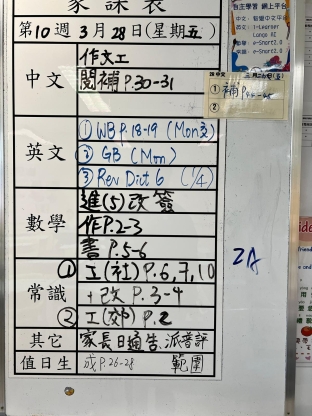 家課表
第10週3月28日(星期五)
中文
作文工
閱補P.30-31
英文
① WB P.18-19 (Mon交)
② GB (Mon)
③ Rev Dict 6 (1/4)
數學
進(5)改簽
作P.2-3
書P.5-6
常識
① 工(社)P.6,7,10
+改P.3-4
② 工(郊)P.2
其它
家長日通告、派普評
值日生
成P.26-28 範圍
2A
自主學習 網上平台
中文:智愛中文平台
英文:i-Learner
e-Smart2.0
常識:e-Smart2.0
① 補P.44-45
②